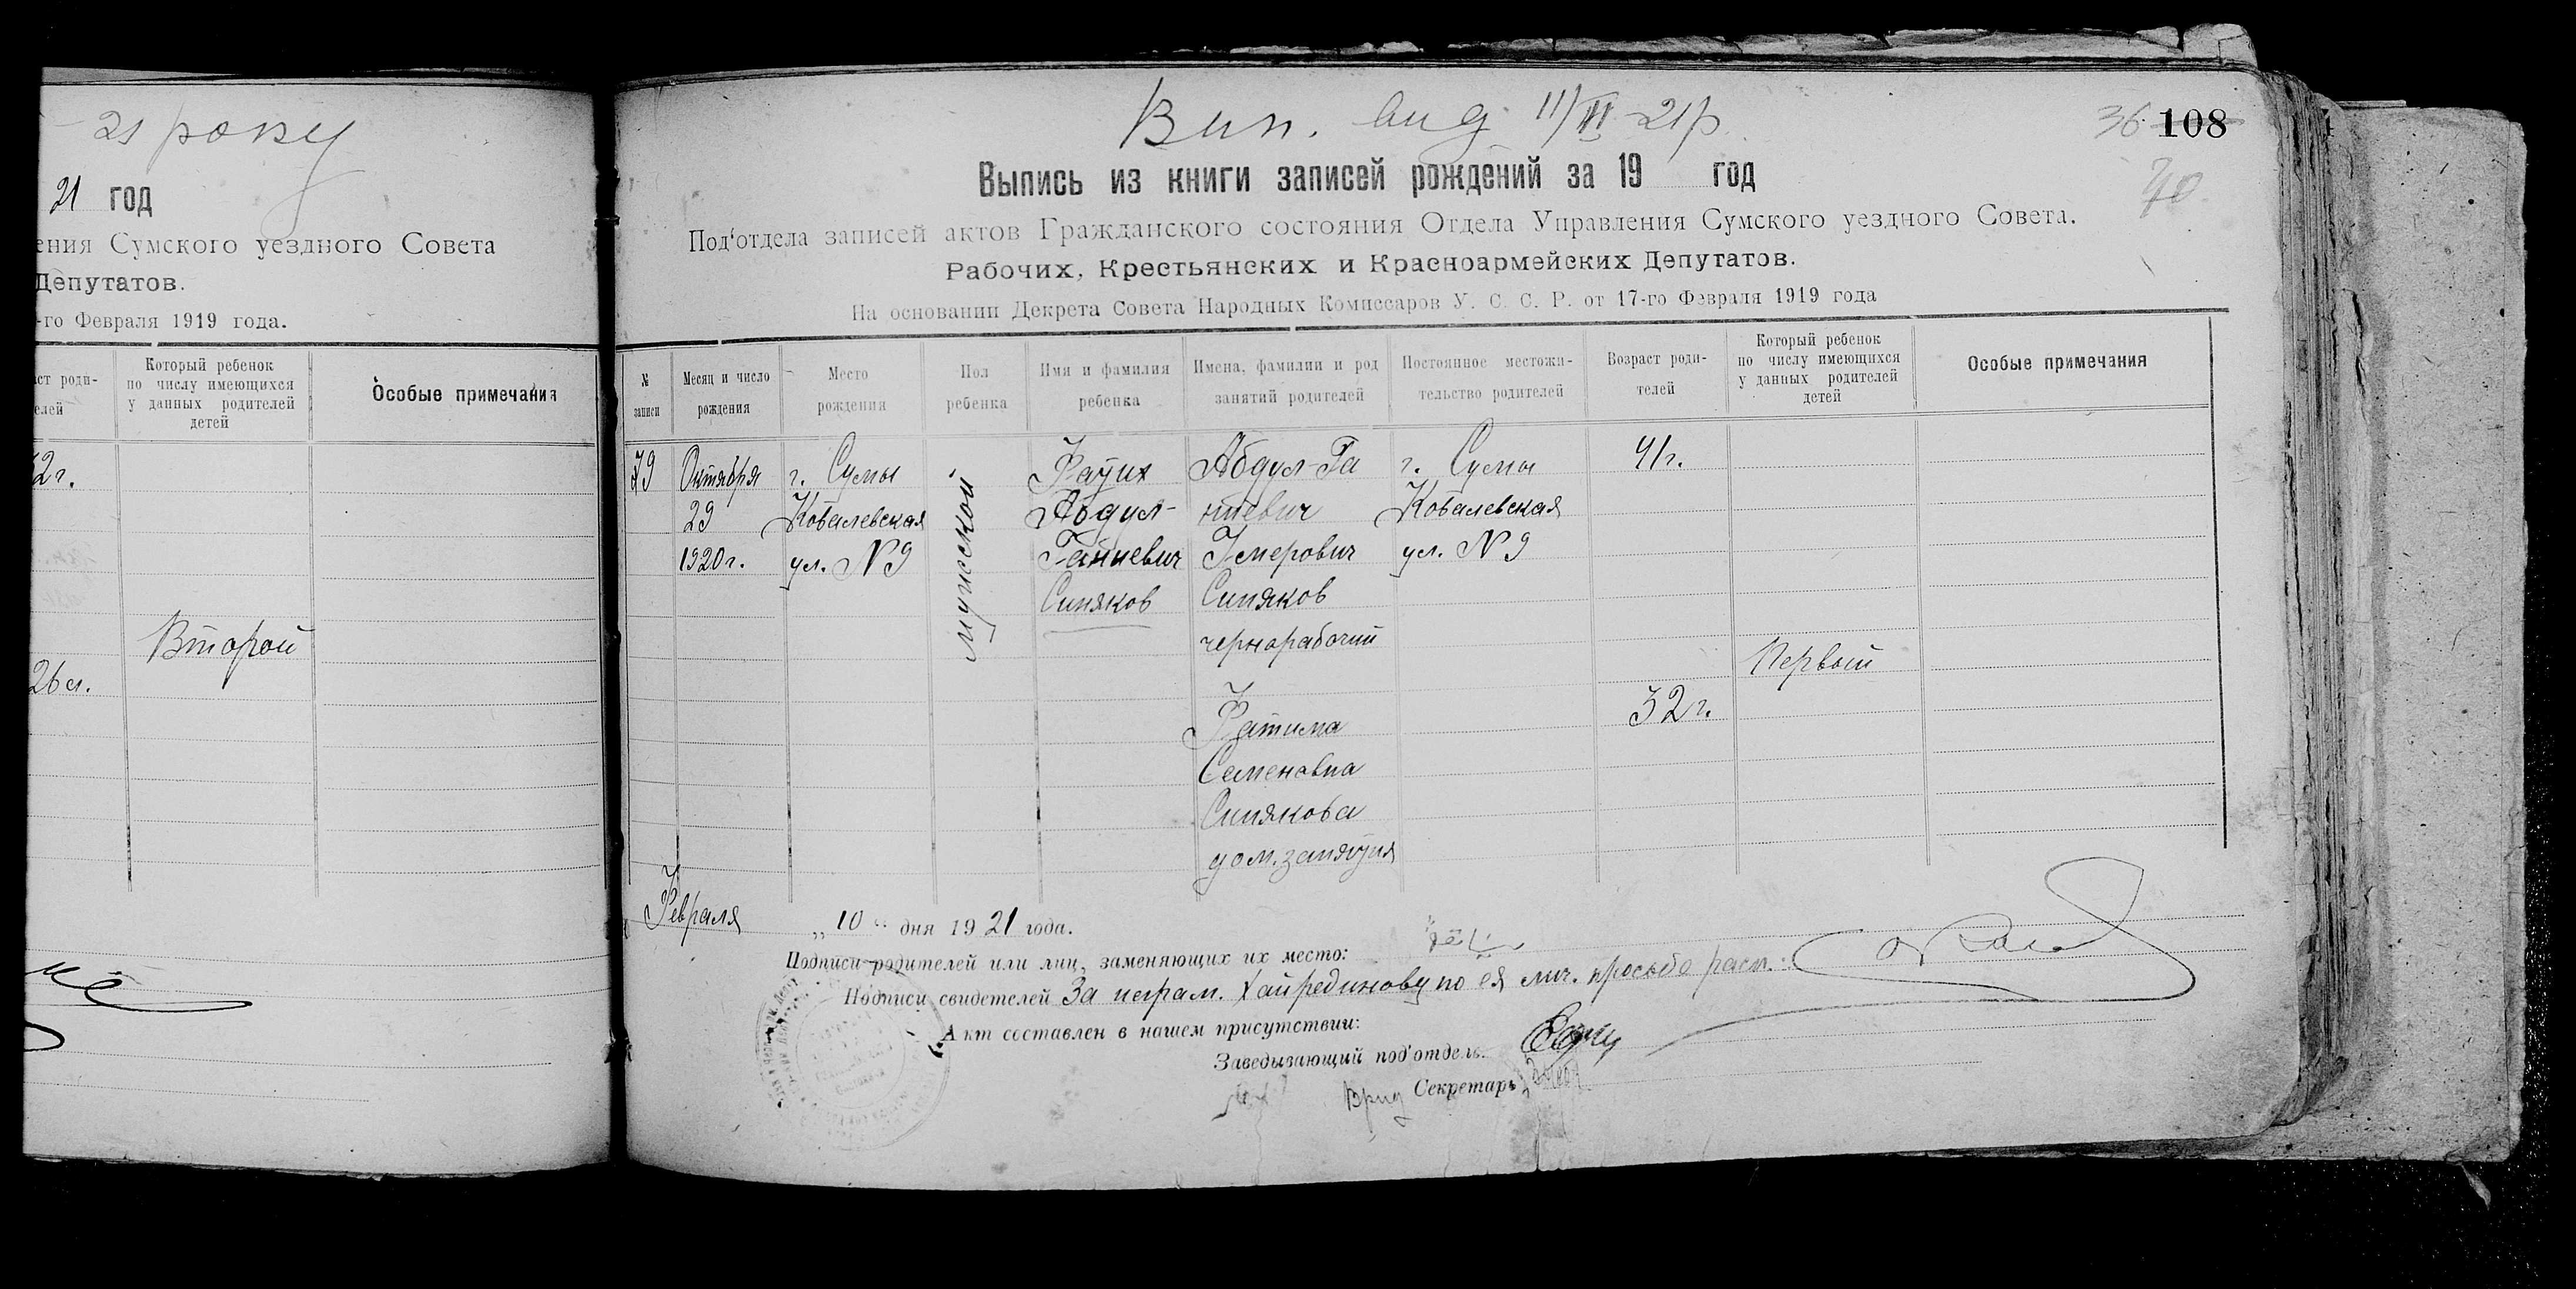 21 року
21 год
ения Сумского уездного Совета
Депутатов.
-го Февраля 1919 года.
ст роди-
елей
Который ребенок
по числу имеющихся
у данных родителей
детей
Особые примечания
2 г.
Второй
26 л.
Вип. вид 11/II-21 р.
36 108
70
Выпись из книги записей рождений за 19 год
Под'отдела записей актов Гражданского состояния Отдела Управления Сумского уездного Совета.
Рабочих, Крестьянских и Красноармейских Депутатов.
На основании Декрета Совета Народных Комиссаров У. С. С. Р. от 17-го Февраля 1919 года
№
записи
Месяц и число
рождения
Место
рождения
Пол
ребенка
Имя и фамилия
ребенка
Имена, фамилии и род
занятий родителей
Постоянное местожи-
тельство родителей
Возраст роди-
телей
Который ребенок
по числу имеющихся
у данных родителей
детей
Особые примечания
79
Октября
29
1920 г.
г. Сумы
Ковалевская
ул. N 9
мужской
Абдул-
Ганиевич
Синяков
Абдул-Га
ниевич
Умерович
Синяков
чернорабочий
Фатима
Семеновна
Синякова
дом. занятия
г. Сумы
Ковалевская
ул. N 9
41 г.
32 г.
Первый
Февраля „10" дня 1921 года.
Подписи родителей или лиц, заменяющих их место:
Подписи свидетелей За неграм. Хайрединову по ея лич. просьбе расп.
Акт составлен в нашем присутствии:
Заведывающий под'отдель.
Врид Секретарь